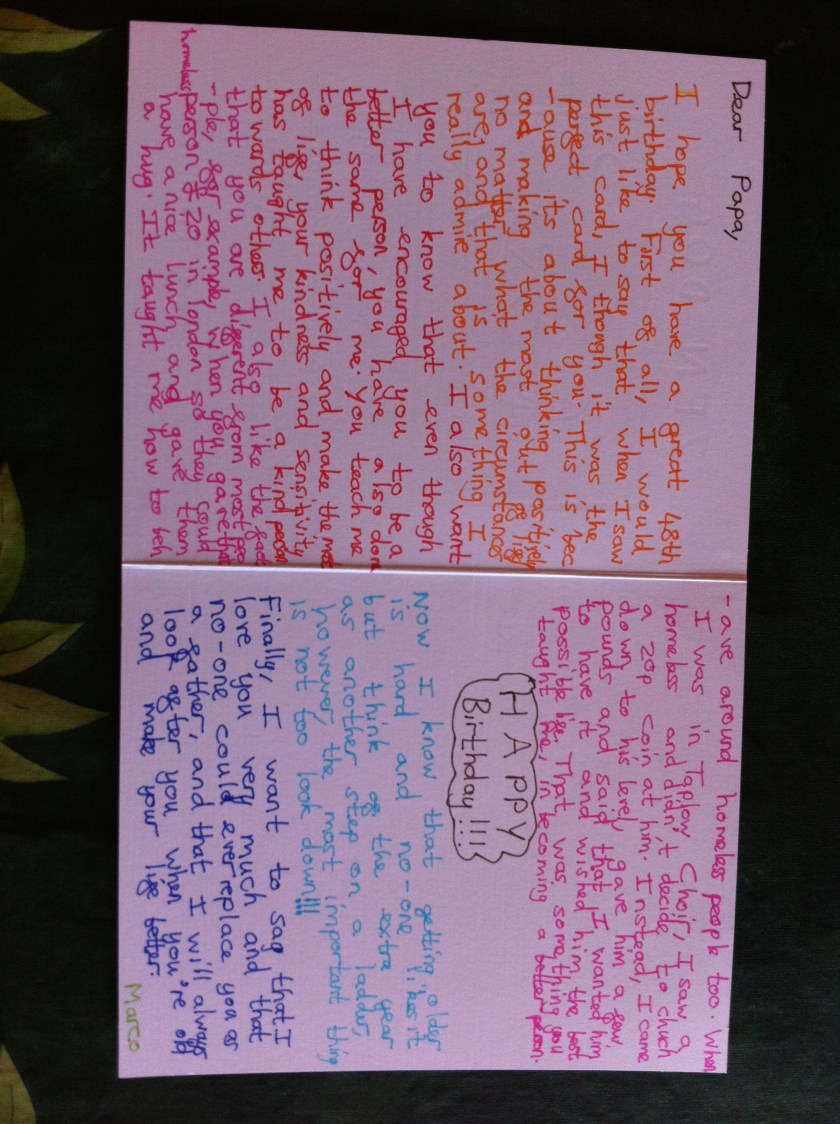 Dear Papa,
I hope you have a great 48th
birthday. First of all, I would
just like to say that when I saw
this card, I though it was the
perfect card for you. This is bec
-ause its about thinking positively
and making the most out of life,
no matter what the circumstances
are, and that is something I
really admire about. I also want
you to know that even though
I have encouraged you to be a
better person, you have also done
the same for me. You teach me
to think positively and make the most
of life, your kindness and sensitivity
has taught me to be a kind person
towards others. I also like the fact
that you are different from most peo
-ple, for example, when you gave that
homeless person £20 in london so they could
have a nice lunch and gave them
a hug. It taught me how to beh
-ave around homeless people too. When
I was in Taplow Choir, I saw a
homeless and didn't decide to chuck
a 20p coin at him. Instead, I came
down to his level, gave him a few
pounds and said that I wanted him
to have it and wished him the best
possible life. That was something you
taught me, in becoming a better person.
HAppy
Birthday!!!!
Now I know that getting older
is hard and no-one likes it
but think of the extra year
as another step on a ladder,
however, the most important thing
is not too look down!!!
Finally, I want to say that I
love you very much and that
no-one could ever replace you as
a father, and that I will always
look after you when you're old
and make your life better.
Marco